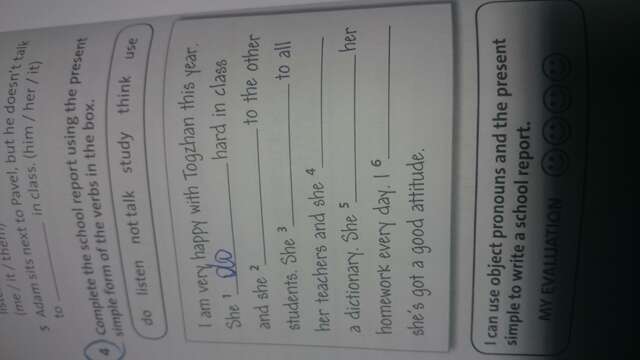 (me / it / them)
5 Adam sits next to Pavel, but he doesn't talk
to ______ in class. (him / her / it)
4 Complete the school report using the present
simple form of the verbs in the box.
do listen not talk study think use
I am very happy with Togzhan this year.
She 1 do hard in class
and she 2 ______ to the other
students. She 3 ______ to all
her teachers and she 4 ______
a dictionary. She 5 ______ her
homework every day. I 6 ______
she's got a good attitude.
I can use object pronouns and the present
simple to write a school report.
MY EVALUATION